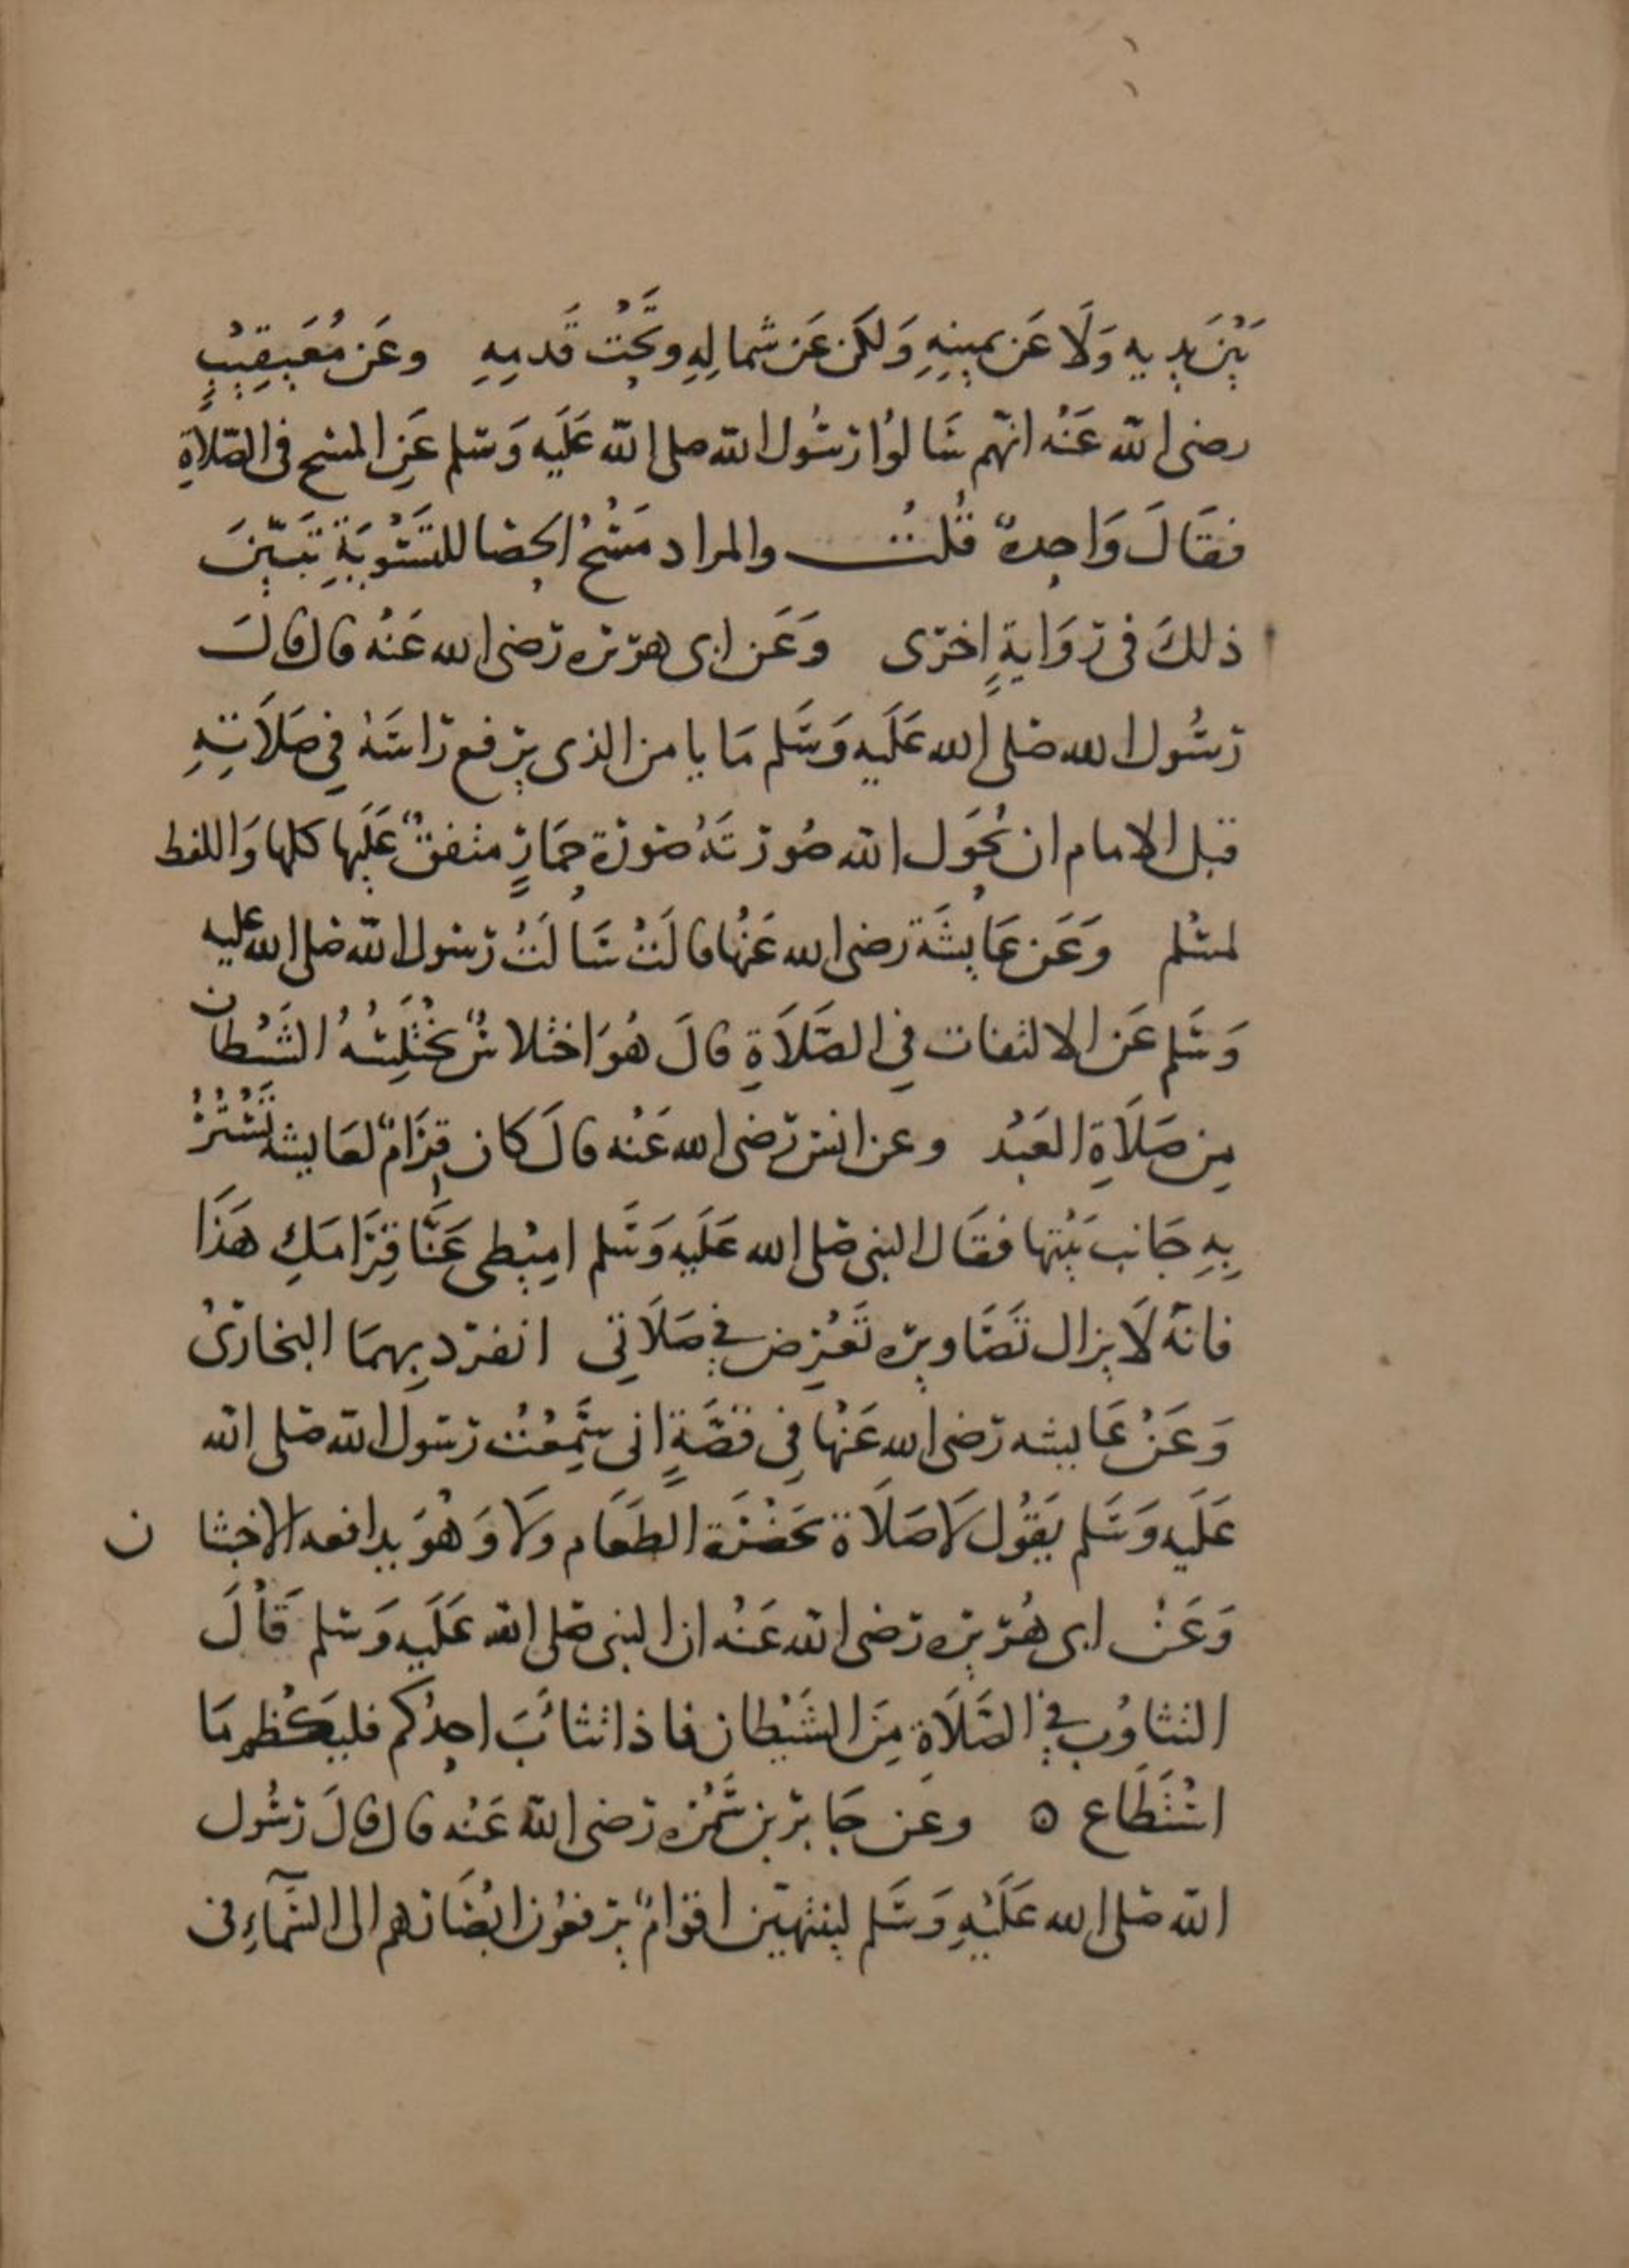 بَيْنَ يديه وَلَا عَن يمينِهِ وَلكن عَن شمالِهِ وتَحْتَ قَدمِهِ وعَن مُعَيقِيْبٍ
رضى الله عَنْه انهم سَالوُا رَسُول الله صلى الله عَلَيه وَسلم عَنِ المسح فى الصّلاَةِ
فقَالَ وَاحِدةً قُلتُ والمراد مَسْحُ الحصَا للتَسْوِيَةِ تَبَيّنَ
ذلكَ فى رِوَايةٍ اخرَى وَعَن ابى هرَيره رَضى الله عَنْه قال قالَ
رَسُول الله صَلى الله عَلَيه وَسَلم مَا يا من الذى يرفع رَاسَهُ فِي صَلاَتِهِ
قبل الامام ان يُحَول الله صُورَتَهُ صُورَة حِمَارٍ متفقٌ عَلَيها كلها وَاللفظ
لمسْلم وَعَن عَايشَة رَضى الله عَنْها قالَتْ سَالَتُ رَسُول الله صَلى الله عليه
وَسَلم عَن الالتفات فِي الصَلاَةِ قالَ هُوَ اختلاسٌ يَخْتَلِسُهُ الشَيْطان
مِن صَلاَةِ العَبْد وعن انس رَضى الله عَنْه قالَ كان قِرَامٌ لعَايشه تَسْتُرُ
بِهِ جَانب بَيْتها فقَال النبى صَلى الله عَلَيه وَسَلم امِيْطى عَنَّا قِرَامَكِ هَذَا
فانّه لَا يزال تَصَاويره تَعْرِض فى صَلَاتِى انفرَد بِهمَا البخارىُ
وَعَنْ عَايشه رَضى الله عَنْها فِى قصَّةٍ انى سَمِعْتُ رَسَول الله صَلى الله
عَلَيه وَسَلم يَقُول لَا صَلَاة بحَضْرَة الطَعَام وَلَا وَهُوَ يدافعه الاخبثان
وَعَنْ ابى هُرَيره رَضى الله عَنْه ان النبى صَلى الله عَلَيه وَسلم قَالَ
التثاوُب فى الصَلَاة مِنَ الشَيْطان فاذا تثائَبَ احدُكم فليَكْظم مَا
اسْتَطَاع ه وعَن جَابر بن سَمُره رَضى الله عَنْه قال قالَ رَسُول
الله صَلى الله عَلَيْهِ وَسَلم لينتهيَن اقوَامٌ يرفعُون ابْصَارَهم الى السَّمآءِ فى